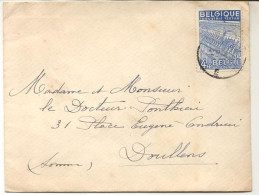 BELGIQUE
BELGIË
Madame et Monsieur
le Docteur Ponthieu
31 Place Eugène Andrieu
Doullens
(Somme)